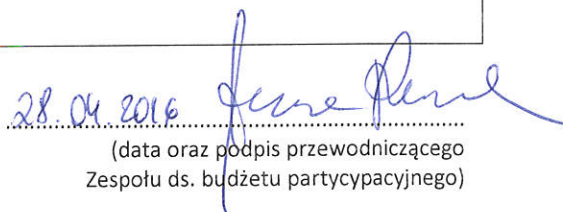 28.04.2016
(data oraz podpis przewodniczącego
Zespołu ds. budżetu partycypacyjnego)